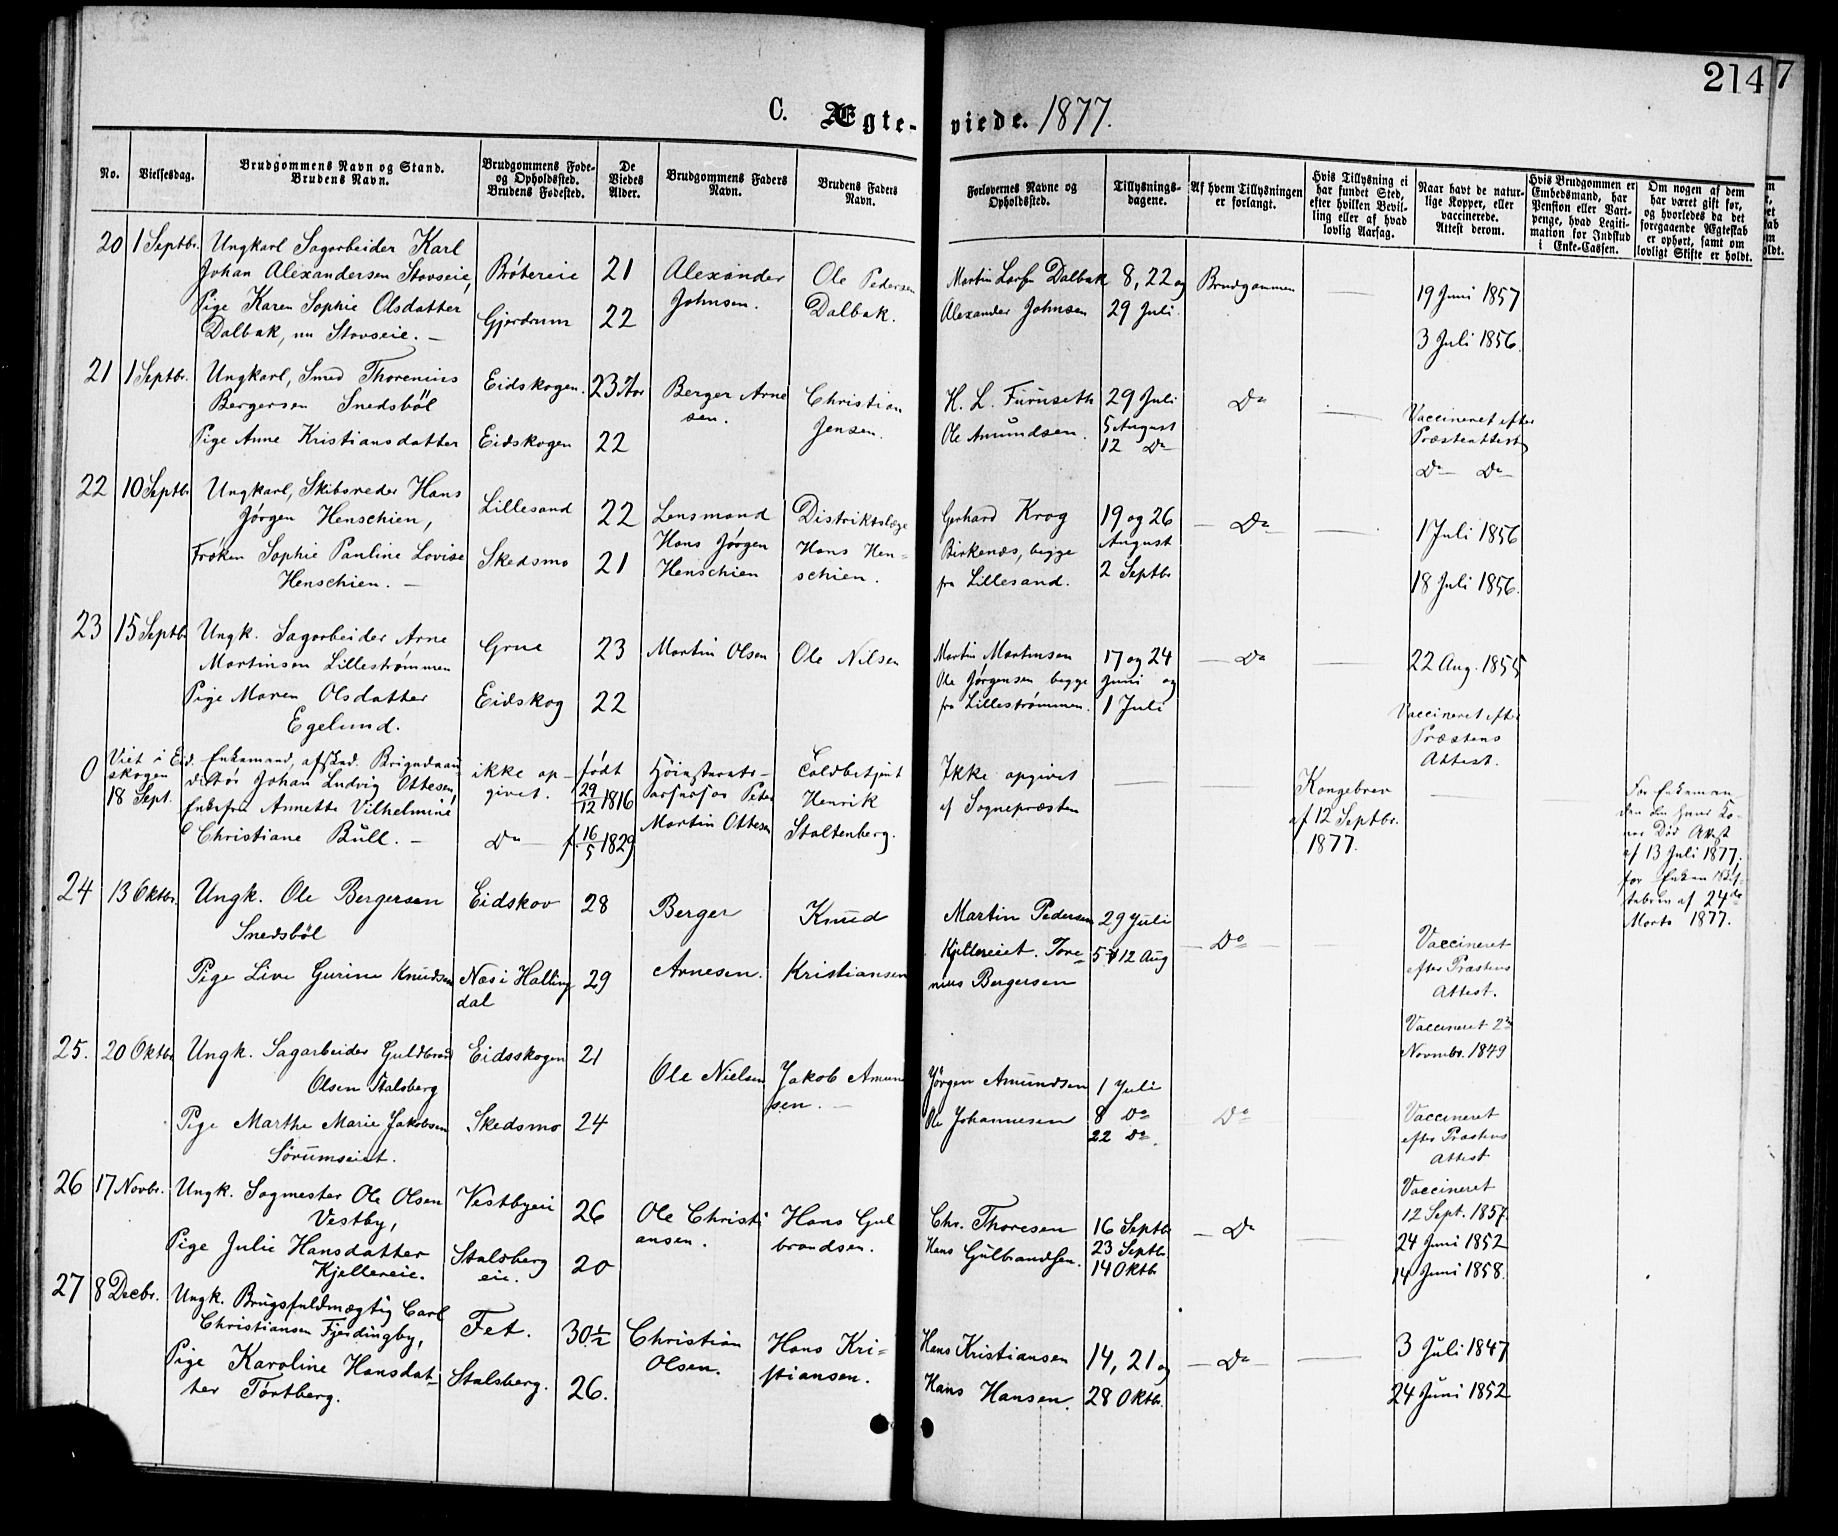 214 7
C. Ægte-viede. 1877.
No.
Vielsesdag.
Brudgommens Navn og Stand.
Brudens Navn.
Brudgommens Føde-
og Opholdssted.
Brudens Fødested.
De
Viedes
Alder.
Brudgommens Faders
Navn.
Brudens Faders
Navn.
Forlovernes Navne og
Opholdssted.
Tillysnings-
dagene.
Af hvem Tillysningen
er forlangt.
Hvis Tillysning ei
har fundet Sted,
efter hvilken Bevil-
ling eller af hvad
lovlig Aarsag.
Naar havt de natur-
lige Kopper, eller
vaccinerede.
Attest derom.
Hvis Brudgommen er
Embedsmand, har
Pension eller Vart-
penge, hvad Legiti-
mation for Indskud
i Enke-Cassen.
Om nogen af dem
har været gift før,
og hvorledes da det
foregaaende Ægteskab
er ophørt, samt om
lovligt Skifte er holdt.
20 1 Septbr.
Ungkarl Sagarbeider Karl
Johan Alexandersen Stovseie,
Pige Karen Sophie Olsdatter
Dalbak, nu Stovseie. —
Bråtereie
Gjerdrum
21
22
Alexander
Johnsen.
Ole Pedersen
Dalbak.
Martin Larsen Dalbak
Alexander Johnsen
8, 22 og
29 Juli.
Brudgommen
—
19 Juni 1857
3 Juli 1856.
21 1 Septbr.
Ungkarl, Smed Thorenius
Bergersen Snedsböl
Pige Anne Kristiansdatter
Eidskogen.
Eidskogen
23
22
Berger Arne
sen.
Christian
Jensen.
H. L. Furuseth
Ole Amundsen.
29 Juli
5 August
12 Do
Do
—
Vaccineret efter
Præsteattest
Do — Do —
22 10 Septbr
Ungkarl, Skibsreder Hans
Jørgen Henschien,
Frøken Sophie Pauline Lovise
Henschien. —
Lillesand
Skedsmo
22
21
Lensmand
Hans Jørgen
Henschien
Distriktslæge
Hans Hen=
schien.
Gerhard Krog
Birkenæs, begge
fra Lillesand.
19 og 26
August
2 Septbr
— Do —
—
1 Juli 1856
18 Juli 1856.
23 15 Septbr
Ungk. Sagarbeider Arne
Martinsen Lillestrømmen
Pige Maren Olsdatter
Egelund.
Grue
Eidskog
23
22
Martin Olsen
Ole Nilsen
Martin Martinsen
Ole Jørgensen begge
fra Lillestrømmen.
17 og 24
Juni og
1 Juli
— Do
—
22 Aug. 1855
Vaccineret efter
Præstens
Attest.
0 Viet i Eid-
skogen
18 Sept.
Enkemand, afsked. Brigadeau-
ditør Johan Ludvig Ottesen,
Enkefru Annette Vilhelmine
Christiane Bull. —
ikke op-
givet.
Do —
født
29/12 1816
f. 16/5 1829
Peter
Martin Ottesen
Toldbetjent
Henrik
Stoltenberg.
Ikke opgivet
af Sognepræsten
—
—
Kongebrev
af 12 Septbr.
1877.
—
For Enkeman
den
Død Attest
af 13 Juli 1877;
for Enken
af 24de
Marts 1877.
24 13 Oktbr.
Ungk. Ole Bergersen
Snedsböl
Pige Live Gurine Knudsen
Eidskov
Nes i Halling
dal
28
29
Berger
Arnesen.
Knud
Kristiansen
Martin Pedersen
Kjellereiet. Tore=
nius Bergersen
29 Juli
5 & 12 Aug
— Do —
—
Vaccineret
efter Præstens
Attest.
Vaccineret 2den
Novmbr. 1849
25. 20 Oktbr
Ungk. Sagarbeider Guldbrand
Olsen Stalsberg
Pige Marthe Marie Jakobsen
Sörumseiet.
Eidsskogen
Skedsmo
21
24
Ole Nielsen
Jakob Amund
sen. —
Jørgen Amundsen
Ole Johannesen
1 Juli
8 Do
22 Do.
Do
—
Vaccineret
efter Præstens
Attest
Vaccineret
12 Sept. 1857.
26 17 Novbr.
Ungk. Sagmester Ole Olsen
Vestby,
Pige Julie Hansdatter
Kjellereie.
Vestbyeie
Stalsberg
eie.
26
20
Ole Christi
ansen.
Hans Gul
brandsen.
Chr. Thoresen
Hans Gulbrandsen.
16 Septbr
23 Septbr.
14 Oktbr
— Do
—
24 Juni 1852
14 Juni 1858.
27 8 Decbr.
Ungk. Brugsfuldmægtig Carl
Christiansen Fjerdingby,
Pige Karoline Hansdat-
ter Tørtberg.
Fet.
Stalsberg.
30 1/2
26.
Christian
Olsen.
Hans Kri=
stiansen.
Hans Kristiansen
Hans Hansen.
14, 21 og
28 Oktbr.
— Do —
—
3 Juli 1847
24 Juni 1852